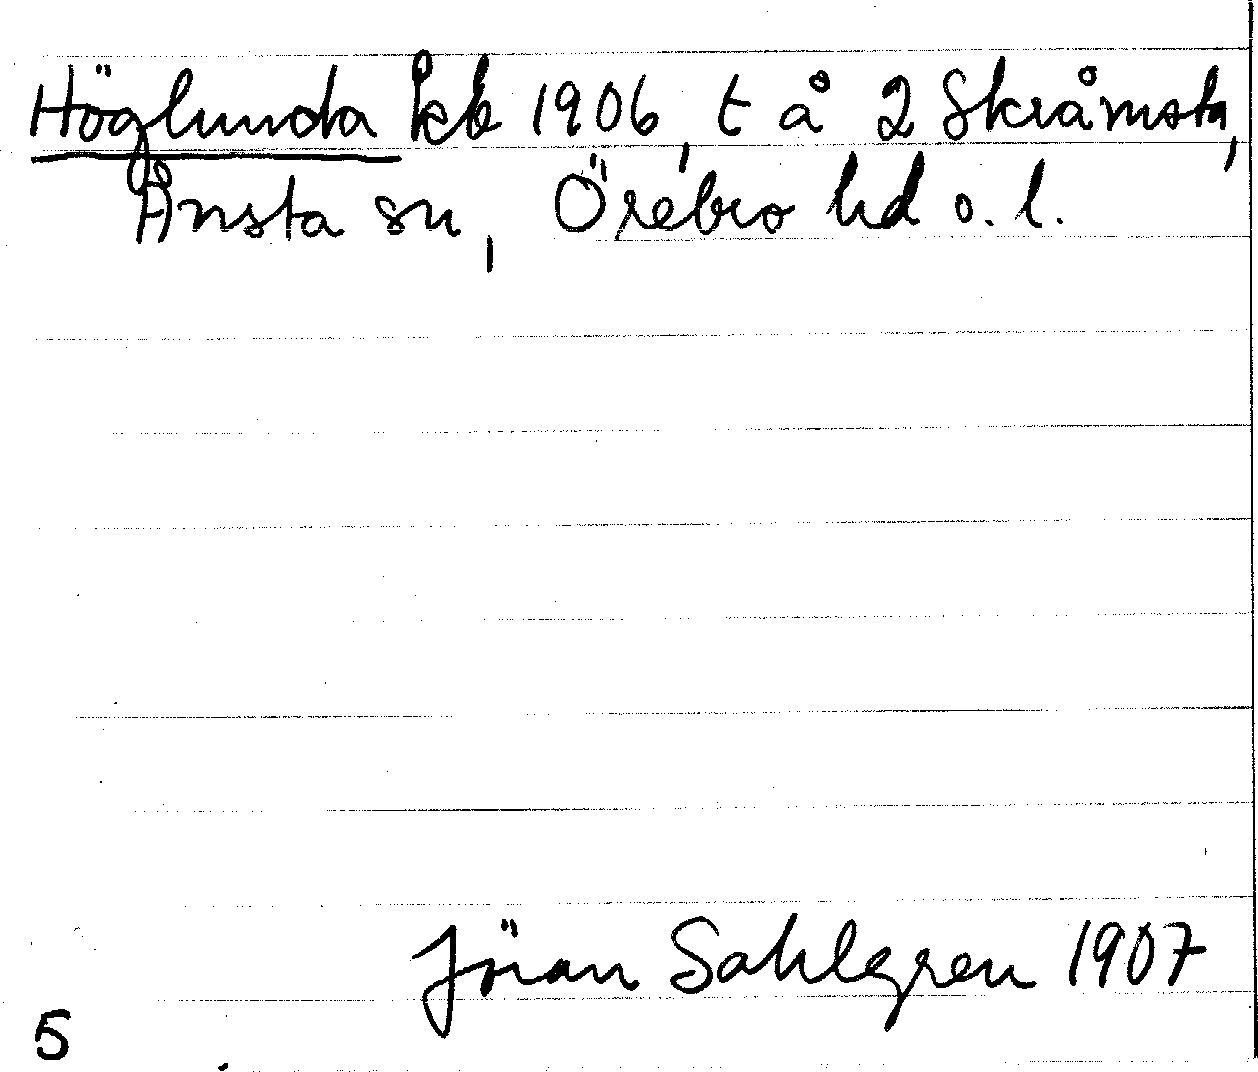 Höglunda kk 1906, t å 2 Skråmsta,
Ånsta sn, Örebro hd o. l.
Jöran Sahlgren 1907
5